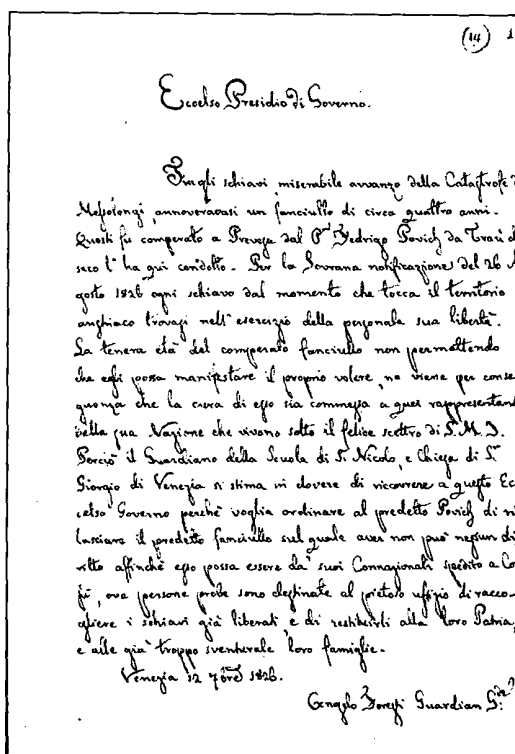 (14) 1
Eccelso Presidio di Governo.
Fra gli schiavi, miserabile avvanzo della Catastrofe d
Messolongi, annoveravasi un fanciullo di circa quattro anni.
Questi fu comperato a Prevesa dal Pn Fedrigo Povich da Traù
seco l'ha qui condotto. Per la Sovrana notificazione del 26 A
gosto 1826 ogni schiavo dal momento che tocca il territorio
trovasi nell'esercizio della personale sua libertà.
La tenera età del comperato fanciullo non permettendo
che egli possa manifestare il proprio volere, ne viene per conse
guenza che la cura di esso sia commessa a quei rappresentant
della sua Nazione che vivono sotto il felice scettro di S. M. I.
Perciò il Guardiano della Scuola di S. Nicolo, e Chiesa di S.
Giorgio di Venezia si stima in dovere di ricorrere a questo Ec
celso Governo perchè voglia ordinare al predetto Povich di ri
lasciare il predetto fanciullo sul quale aver non può nessun di
ritto affinchè esso possa essere da' suoi Connazionali spedito a Co
fù, ove persone probe sono destinate al pietoso uffizio di racco
gliere i schiavi già liberati e di restituirli alla loro Patria,
e alle già troppo sventurate loro famiglie.
Venezia 12 7bre 1826.
Angelo Guardian